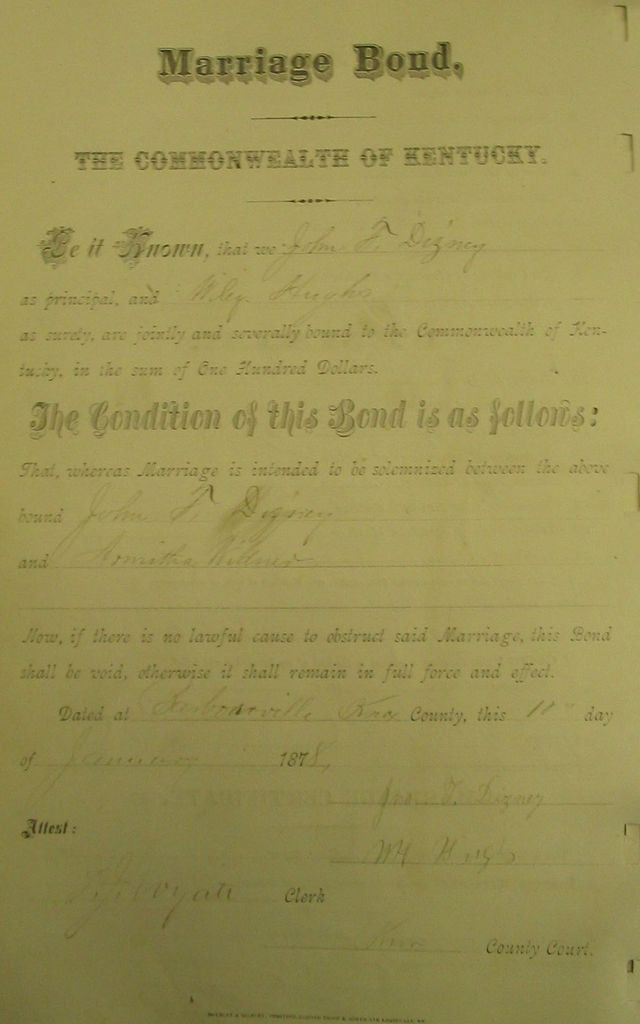 Marriage Bond.
THE COMMONWEALTH OF KENTUCKY.
Be it Known, that we John T. Dizney
as principal, and Hughs
as surety, are jointly and severally bound to the Commonwealth of Ken-
tucky, in the sum of One Hundred Dollars.
The Condition of this Bond is as follows:
That, whereas Marriage is intended to be solemnized between the above
bound John T. Dizney
and
Now, if there is no lawful cause to obstruct said Marriage, this Bond
shall be void, otherwise it shall remain in full force and effect.
Dated at Barbourville Knox County, this 10th day
of January 1878,
Jno. T. Dizney
Attest:
WH Hughs
Clerk
Knox County Court.